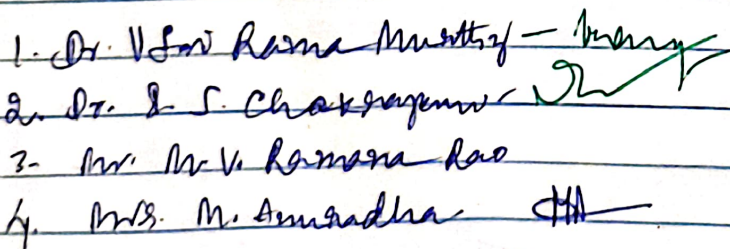 1. Dr. V Sri Rama Murthy -
2. Dr. S. Chakrapani -
3- Mr. M. V. Ramana Rao
4. Mrs. M. Anuradha